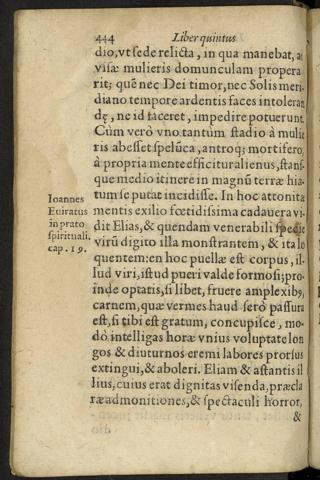 444 Liber quintus
dio, vt sede relicta, in qua manebat, ac
visæ mulieris domunculam propera
rit; quẽ nec Dei timor, nec Solis meri
diano tempore ardentis faces intoleran
dę, ne id faceret, impedire potuerunt.
Cùm verò vno tantùm stadio à mulie
ris abesset spelũca, antroq; mortifero,
à propria mente efficitur alienus, stans-
que medio itinere in magnũ terræ hia-
tum se putat incidisse. In hoc attonitæ
mentis exilio fœtidissima cadauera vi-
dit Elias, & quendam venerabili specie
virũ digito illa monstrantem, & ita lo
quentem: en hoc puellæ est corpus, il-
lud viri, istud pueri valde formosi; pro-
inde optatis, si libet, fruere amplexibꝰ,
carnem, quæ vermes haud serò passura
est, si tibi est gratum, concupisce, mo-
dò intelligas horæ vnius voluptate lon
gos & diuturnos eremi labores prorsus
extingui, & aboleri. Eliam & astantis il
lius, cuius erat dignitas visenda, præcla
ræ admonitiones, & spectaculi horror,
&
Ioannes
Euiratus
in prato
spirituali.
cap. 19.